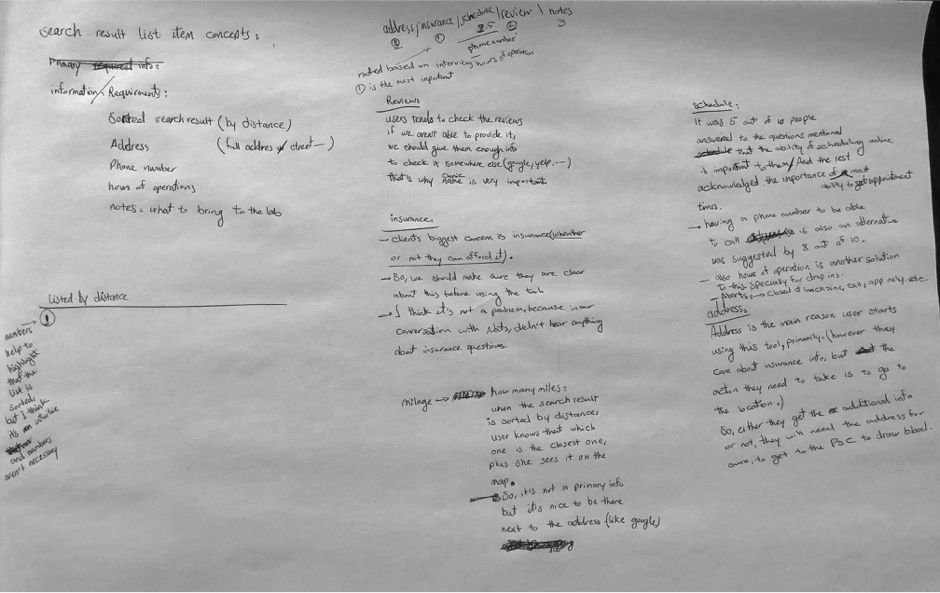 search result list item concepts:
Primary required info:
information/Requirments:
Sorted search result (by distance)
Address (full addres / street---)
Phone number
hours of operations
notes: what to bring to the lab
Listed by distance
①
numbers
help to
highlight
that the
list is
sorted,
but I think
it's
and numbers
aren't necessary
address/insurance/schedule/review/notes
① 2.5 3
phone number
hours of operation
rated based on interviews
① is the most important
Reviews
users tends to check the reviews
if we aren't able to provide it,
we should give them enough info
to check it somewhere else (google, yelp, ---)
that's why clinic name is very important
insurance:
- Client's biggest concern is insurance (whether
or not they can afford it).
- So, we should make sure they are clear
about this before using the tool
- I think it's not a problem, because in our
conversation with, didn't hear anything
about insurance questions.
milage → how many miles:
when the search result
is sorted by distance,
user knows that which
one is the closest one,
plus she sees it on the
map.
- So, it's not a primary info
but it's nice to be there
next to the address (like google)
schedule:
It was 5 out of 10 people
answered to the questions mentioned
schedule that the ability of scheduling online
is important to them/ And the rest
acknowledged the importance of most
ability to get appointment
times.
→ having a phone number to be able
to call is also an alternative
was suggested by 8 out of 10.
- also hours of operation is another solution
to this specially for drop ins.
- Alerts: → closed @ lunch time, call, app only, etc.
address:
Address is the main reason user starts
using this tool, primarily. (however they
care about insurance info, but the
action they need to take is to go to
the location.)
So, either they get the additional info
or not, they will need the address for
sure, to get to the PSC to draw blood.